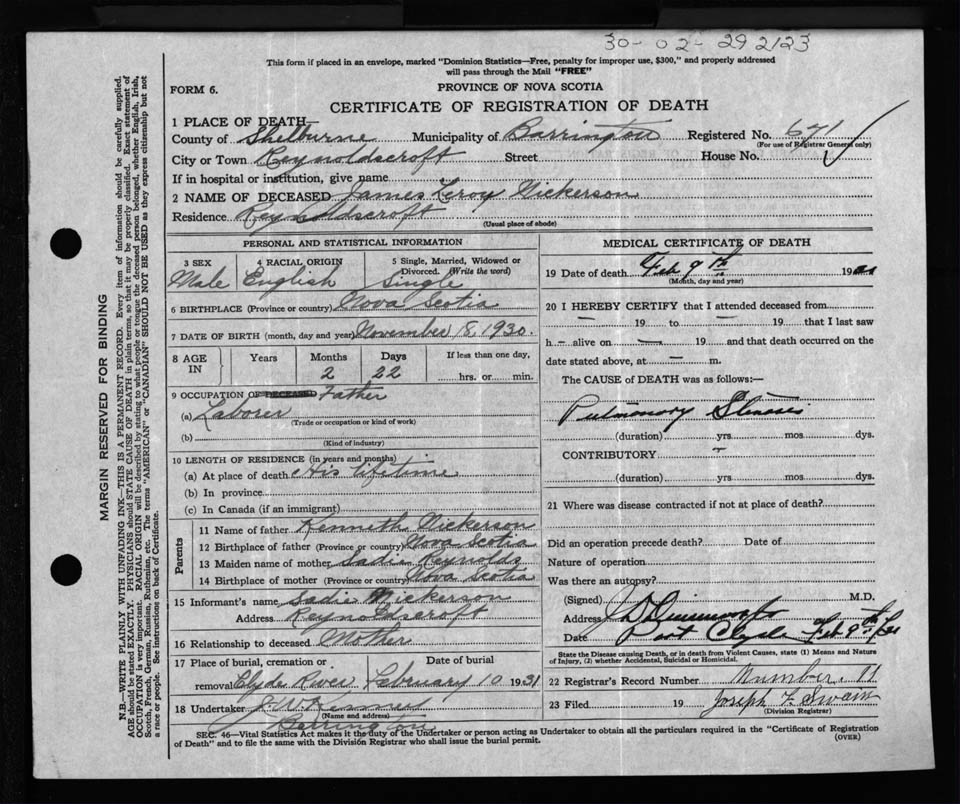 30-02-292123
This form if placed in an envelope, marked "Dominion Statistics—Free, penalty for improper use, $300," and properly addressed
will pass through the Mail "FREE"
FORM 6.
PROVINCE OF NOVA SCOTIA
CERTIFICATE OF REGISTRATION OF DEATH
1 PLACE OF DEATH
County of Shelburne Municipality of Barrington Registered No. 671
(For use of Registrar General only)
City or Town Reynoldscroft Street House No.
If in hospital or institution, give name
2 NAME OF DECEASED James Leroy Nickerson
Residence Reynoldscroft
(Usual place of abode)
PERSONAL AND STATISTICAL INFORMATION
3 SEX 4 RACIAL ORIGIN 5 Single, Married, Widowed or
Divorced. (Write the word)
Male English Single
6 BIRTHPLACE (Province or country) Nova Scotia
7 DATE OF BIRTH (month, day and year) November 18, 1930.
8 AGE IN Years Months Days If less than one day,
2 22 hrs. or min.
9 OCCUPATION OF DECEASED Father
(a) Laborer
(Trade or occupation or kind of work)
(b)
(Kind of industry)
10 LENGTH OF RESIDENCE (in years and months)
(a) At place of death His lifetime
(b) In province
(c) In Canada (if an immigrant)
Parents
11 Name of father Kenneth Nickerson
12 Birthplace of father (Province or country) Nova Scotia
13 Maiden name of mother Sadie Reynolds
14 Birthplace of mother (Province or country) Nova Scotia
15 Informant's name Sadie Nickerson
Address Reynoldscroft
16 Relationship to deceased Mother
17 Place of burial, cremation or Date of burial
removal Clyde River February 10 1931
18 Undertaker
(Name and address)
Barrington
MEDICAL CERTIFICATE OF DEATH
19 Date of death Feb 9th 19
(Month, day and year)
20 I HEREBY CERTIFY that I attended deceased from
— 19 to — 19 that I last saw
h — alive on — 19 and that death occurred on the
date stated above, at — m.
The CAUSE OF DEATH was as follows:—
Pulmonary
(duration) yrs. mos. dys.
CONTRIBUTORY
(duration) yrs. mos. dys.
21 Where was disease contracted if not at place of death?
Did an operation precede death? Date of
Nature of operation
Was there an autopsy?
(Signed) M.D.
Address Port Clyde
Date Feb 9th
State the Disease causing Death, or in death from Violent Causes, state (1) Means and Nature
of Injury, (2) whether Accidental, Suicidal or Homicidal.
22 Registrar's Record Number Number. 11
23 Filed 19 Joseph Z Swain
(Division Registrar)
SEC. 46—Vital Statistics Act makes it the duty of the Undertaker or person acting as Undertaker to obtain all the particulars required in the "Certificate of Registration
of Death" and to file the same with the Division Registrar who shall issue the burial permit. (OVER)
MARGIN RESERVED FOR BINDING
N.B.—WRITE PLAINLY WITH UNFADING INK—THIS IS A PERMANENT RECORD. Every item of information should be carefully supplied.
AGE should be stated EXACTLY. PHYSICIANS should STATE CAUSE OF DEATH in plain terms, so that it may be properly classified. Exact statement of
OCCUPATION is very important. RACIAL ORIGIN will be described by stating to what people or tongue the deceased person belonged, whether English, Irish,
Scotch, French, German, Russian, Ruthenian, etc. The terms "AMERICAN" or "CANADIAN" SHOULD NOT BE USED as they express citizenship but not
a race or people. See instructions on back of Certificate.